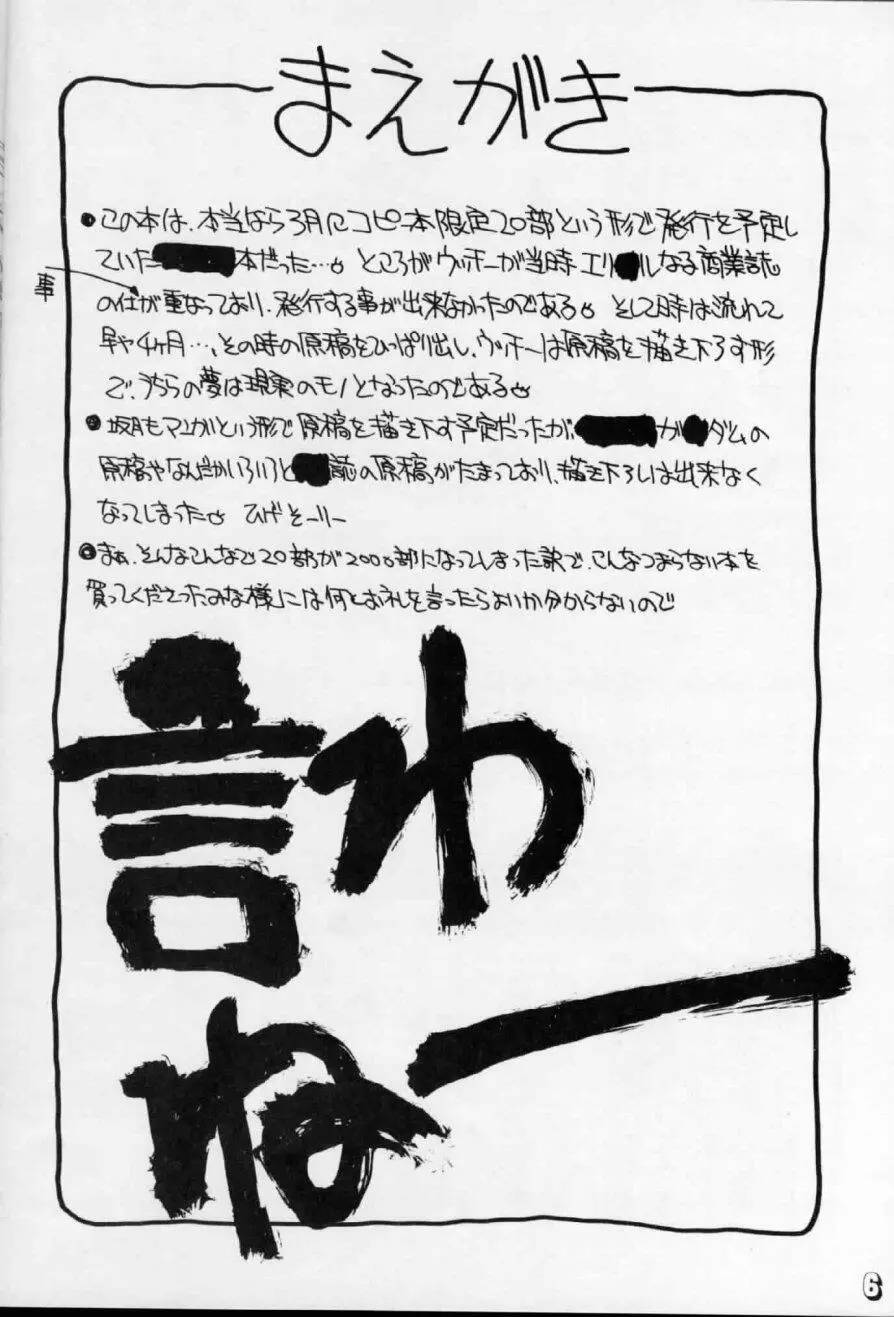 まえがき
●この本は、本当なら3月にコピー本限定20部という形で発行を予定し
ていた 本だった…。ところがウッチーが当時エリ●ルなる商業誌
の仕が重なっており、発行する事が出来なかったのである。そして時は流れて
事
早や4ヶ月…、その時の原稿をひっぱり出し、ウッチーは原稿を描き下ろす形
で、うちらの夢は現実のモノとなったのである。
● もマンガという形で原稿を描き下す予定だったが、 ガ●ダムの
原稿やなんだかいろいろと 誌の原稿がたまっており、描き下ろしは出来なく
なってしまった。ひげそーりー
●まぁ、そんなこんなで20部が2000部になってしまった訳で、こんなつまらない本を
買ってくださったみな様には何とお礼を言ったらよいか分からないので
言わ
ねー
6